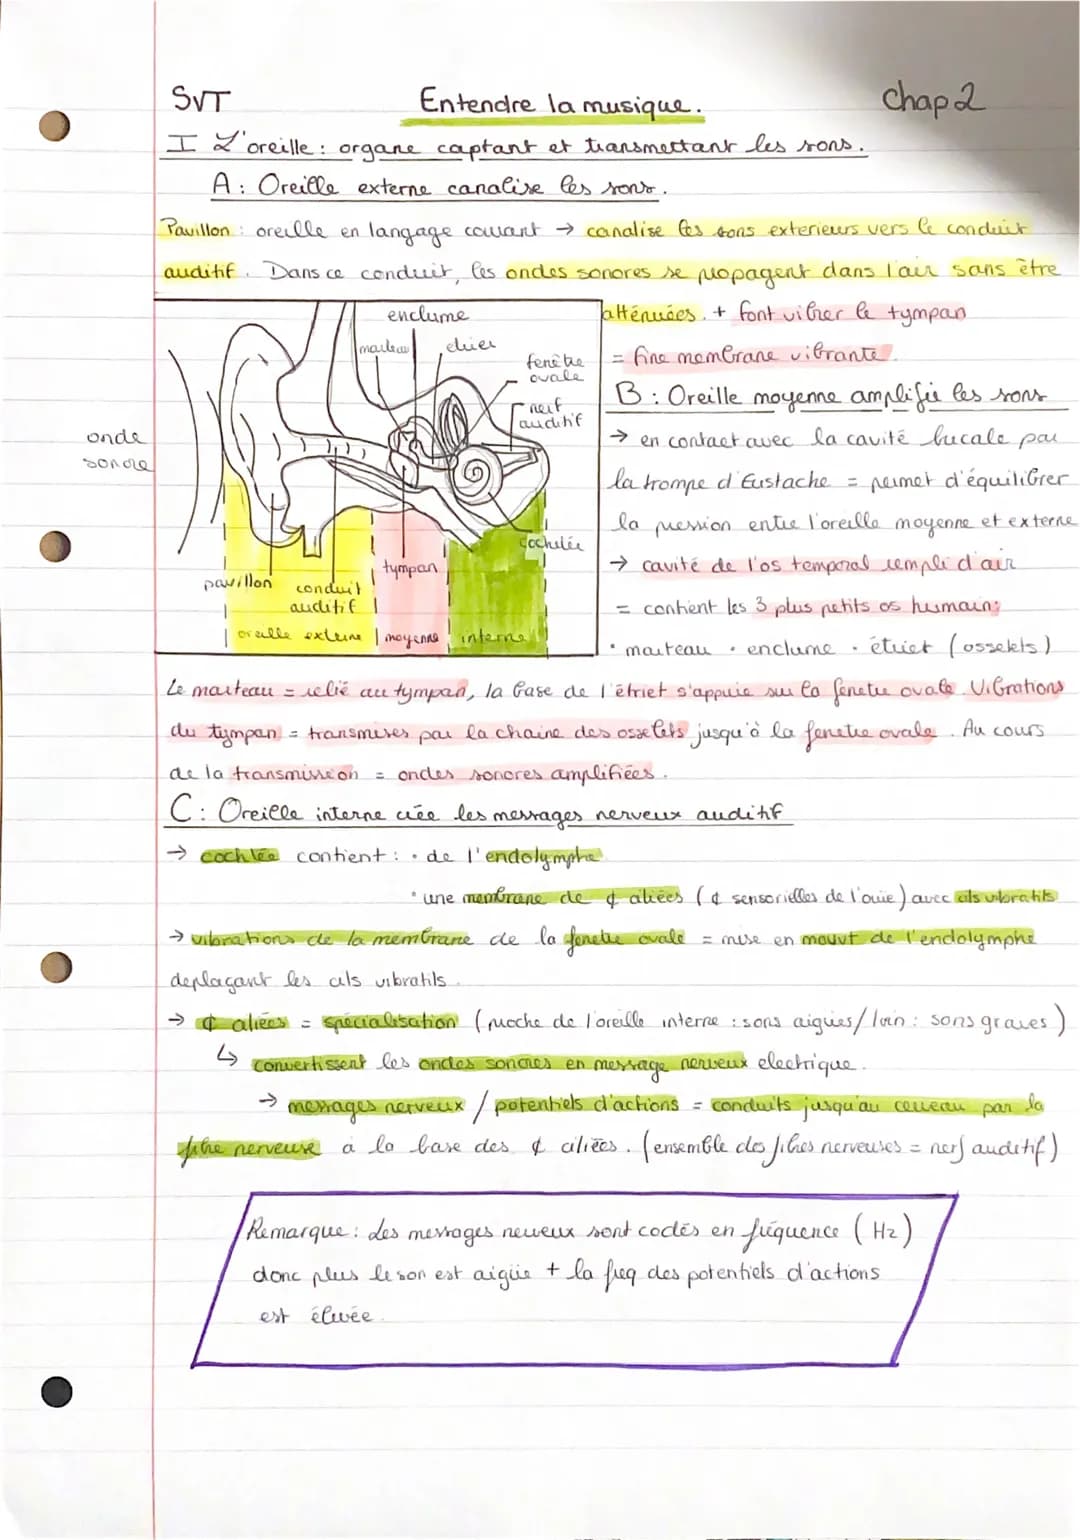 SVT Entendre la musique. Chap 2
I L'oreille : organe captant et transmettant les sons.
A : Oreille externe canalise les sons.
Pavillon : oreille en langage courant → canalise les sons exterieurs vers le conduit
auditif. Dans ce conduit, les ondes sonores se propagent dans l'air sans être
atténuées. + font vibrer le tympan
= fine membrane vibrante.
enclume
marteau
etrier
fenêtre
ovale
nerf
auditif
onde
sonore
cochlée
tympan
pavillon
conduit
auditif
oreille externe | moyenne | interne
B : Oreille moyenne amplifie les sons
→ en contact avec la cavité bucale par
la trompe d'Eustache = permet d'équilibrer
la pression entre l'oreille moyenne et externe
→ cavité de l'os temporal rempli d'air
= contient les 3 plus petits os humain:
• marteau • enclume • étrier (osselets)
Le marteau = relié au tympan, la base de l'étriet s'appuie sur la fenetre ovale. Vibrations
du tympan = transmises par la chaine des osselets jusqu'à la fenetre ovale. Au cours
de la transmission = ondes sonores amplifiées.
C : Oreille interne crée les messages nerveux auditif
→ cochlée contient : • de l'endolymphe
• une membrane de ¢ ciliées (¢ sensorielles de l'ouie) avec cils vibratils
→ vibrations de la membrane de la fenetre ovale = mise en mouvt de l'endolymphe
deplaçant les cils vibratils.
→ ¢ ciliées = spécialisation (proche de l'oreille interne : sons aigües / loin : sons graves)
↳ convertissent les ondes sonores en message nerveux electrique.
→ messages nerveux / potentiels d'actions = conduits jusqu'au cerveau par la
fibre nerveuse à la base des ¢ ciliées. (ensemble des fibres nerveuses = nerf auditif)
Remarque : Les messages nerveux sont codés en fréquence (Hz)
donc plus le son est aigüe + la freq des potentiels d'actions
est élevée.